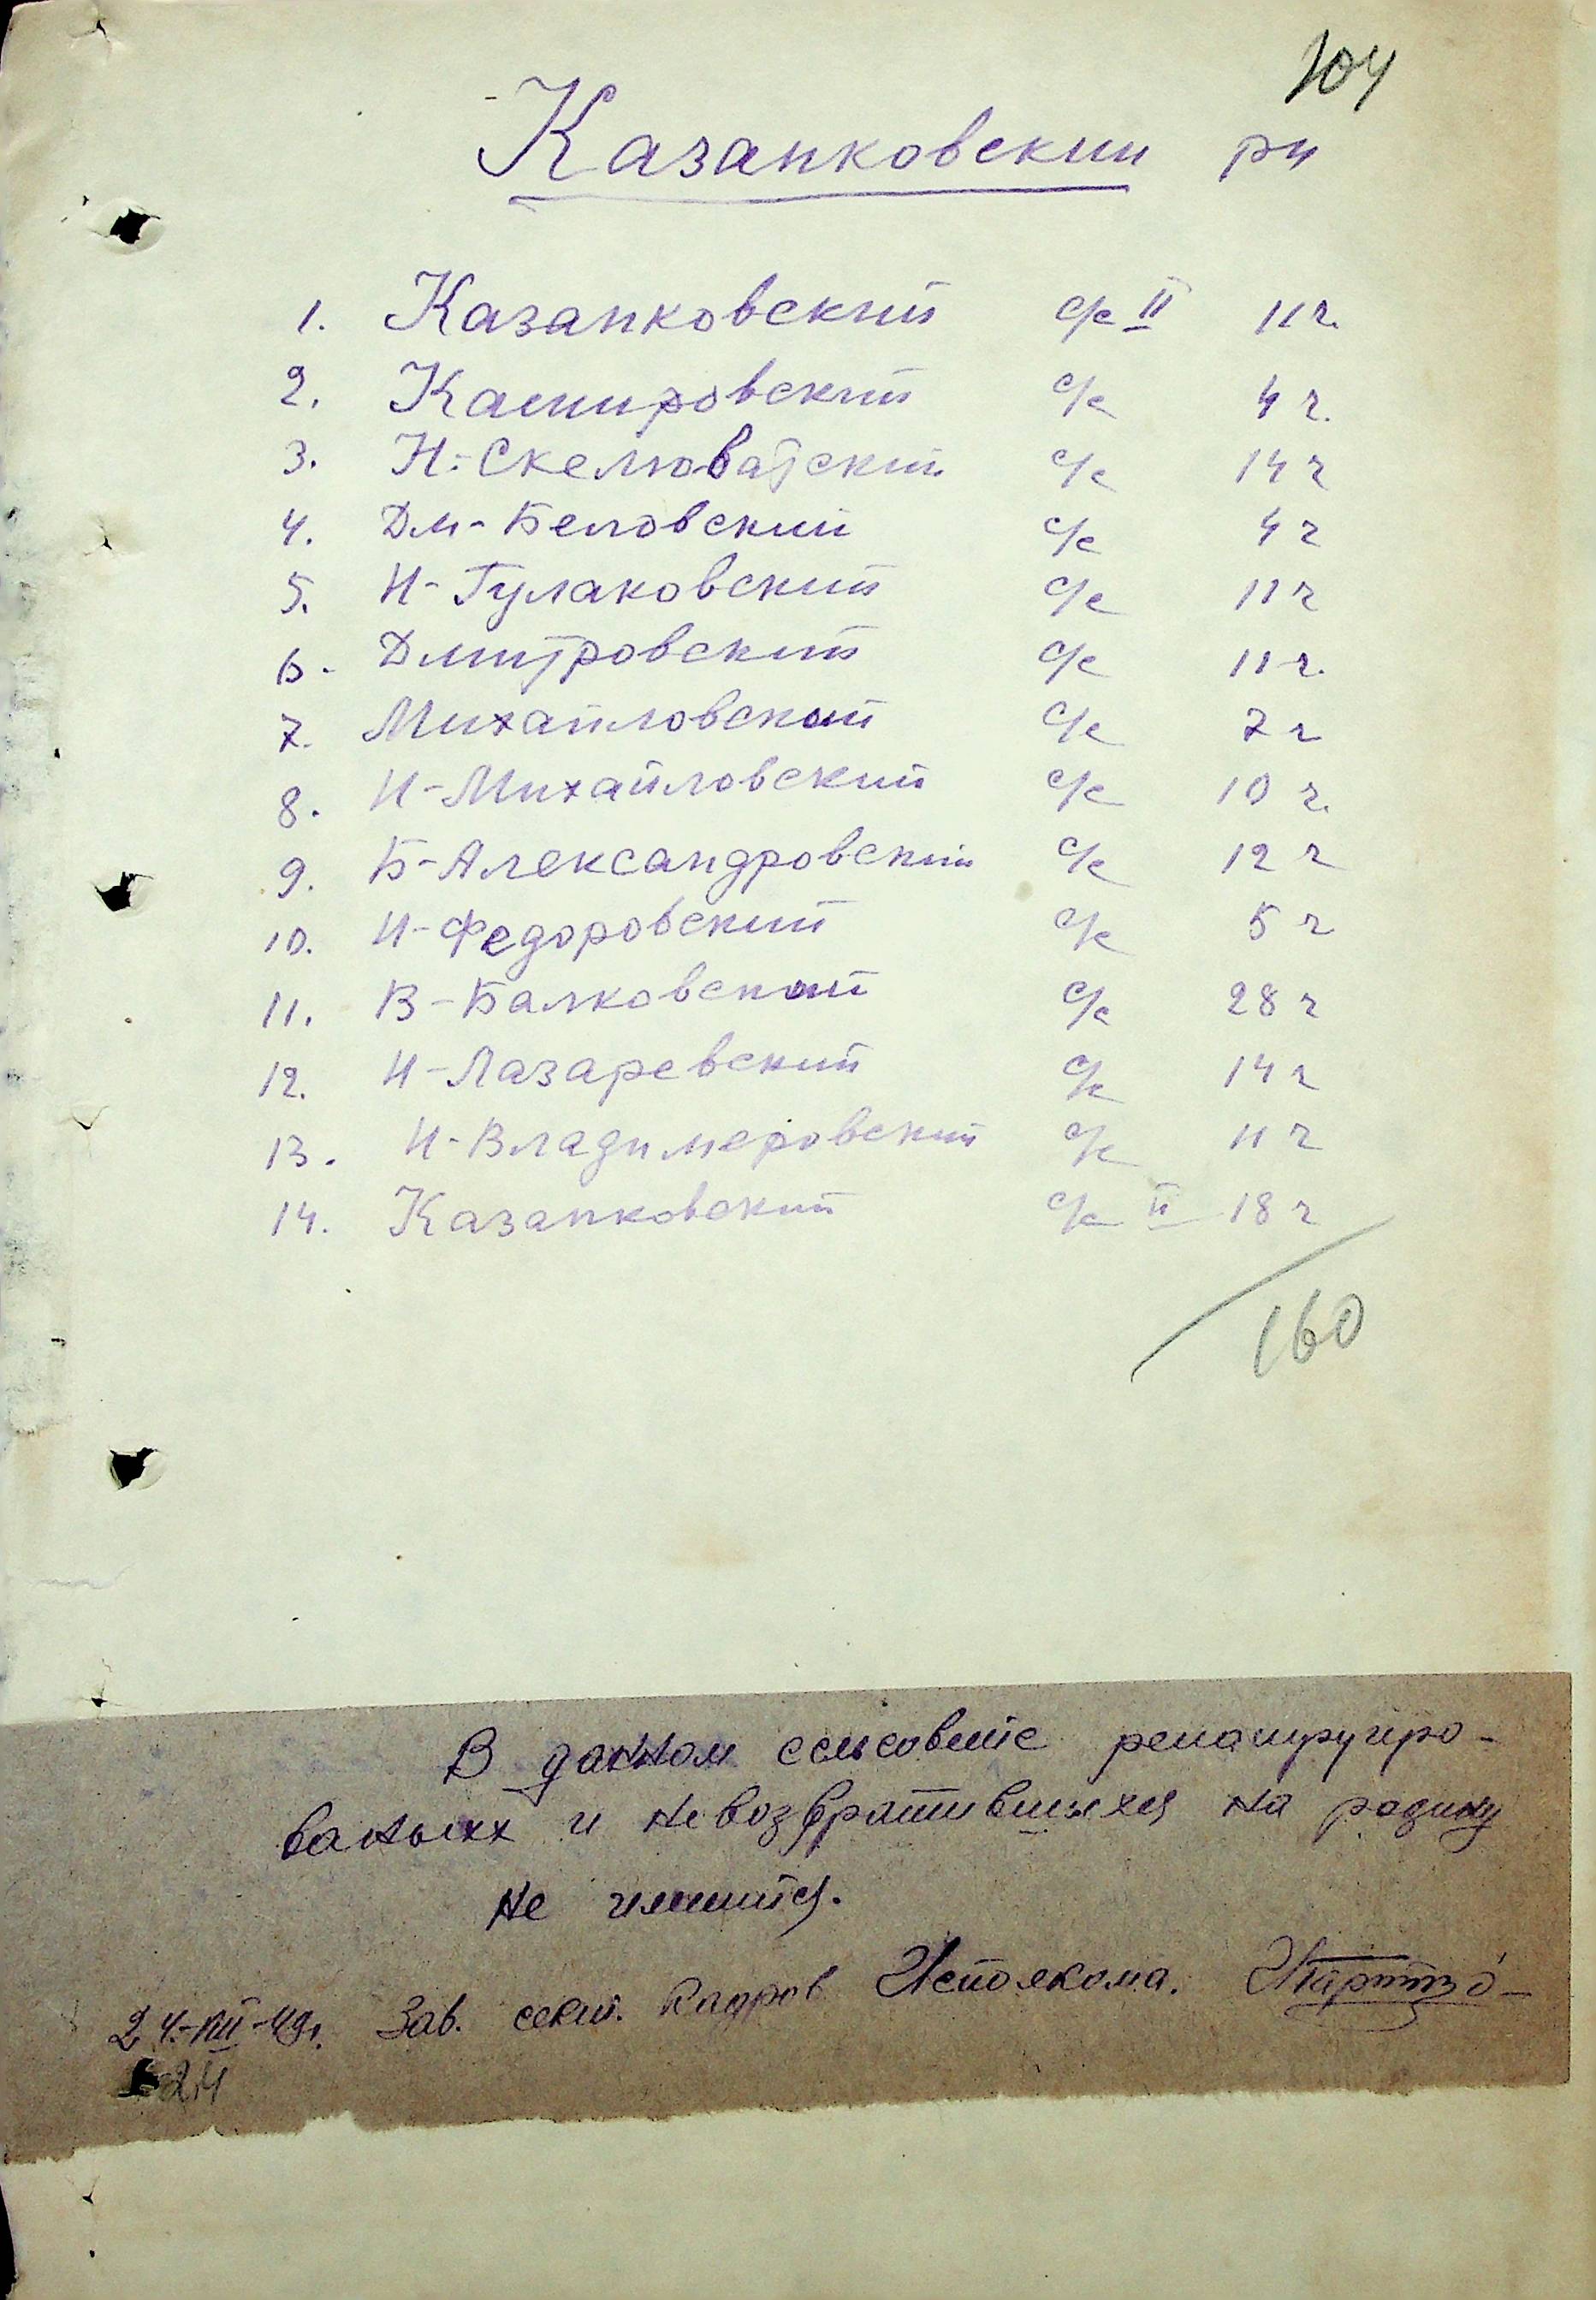 104
Казанковский рн
1. Казанковский с/с II 11 ч.
2. Кашировский с/с 4 ч.
3. Н-Скелюватский с/с 14 ч
4. Дм-Беловский с/с 4 ч
5. Н-Гулаковский с/с 11 ч
6. Дмитровский с/с 11 ч.
7. Михайловский с/с 7 ч
8. Н-Михайловский с/с 10 ч.
9. Б-Александровский с/с 12 ч
10. Н-Федоровский с/с 5 ч
11. В-Балковский с/с 28 ч
12. Н-Лазаревский с/с 14 ч
13. Н-Владимеровский с/с 11 ч
14. Казанковский с/с II 18 ч
160
В данном сельсовете репатруиро-
ваныхх и невозвратившихся на родину
не имеится.
24-VIII-49г. Зав. секш. кадров Исполкома.
24